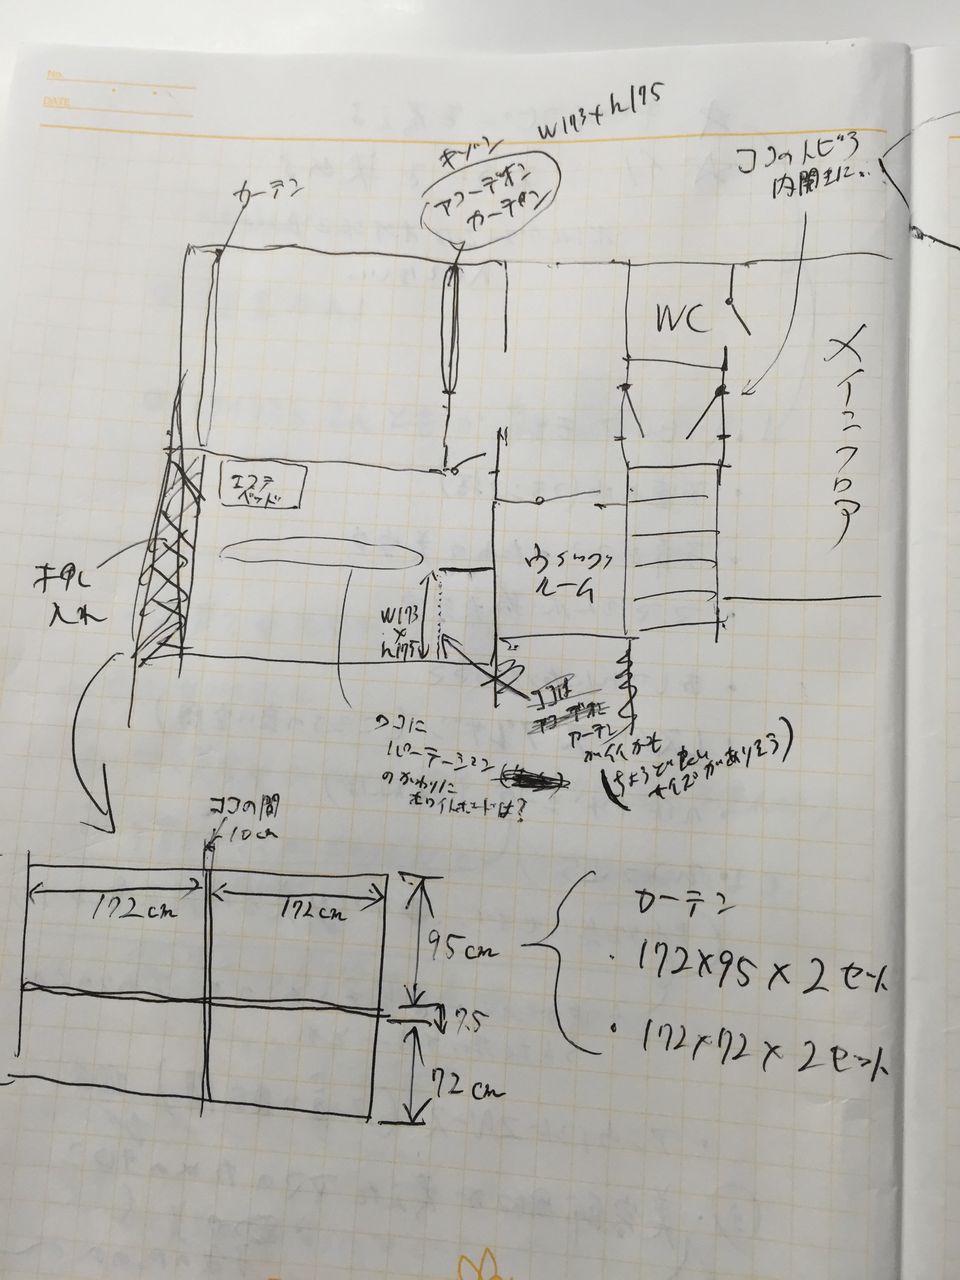 No.
DATE
W173×h175
キゾン
アコーデオン
カーテン
カーテン
ココのトビラ
内開きに..
WC
メインフロア
エステ
ベッド
押し
入れ
W173
×
h175
ルーム
ココは
カーテン
がイイかも
(ちょうど良い
サイズがありそう)
ココに
パーテーション
のかわりに
ホワイトボードは?
ココの間
10cm
172cm
172cm
95cm
7.5
72cm
カーテン
・172×95×2セット
・172×72×2セット